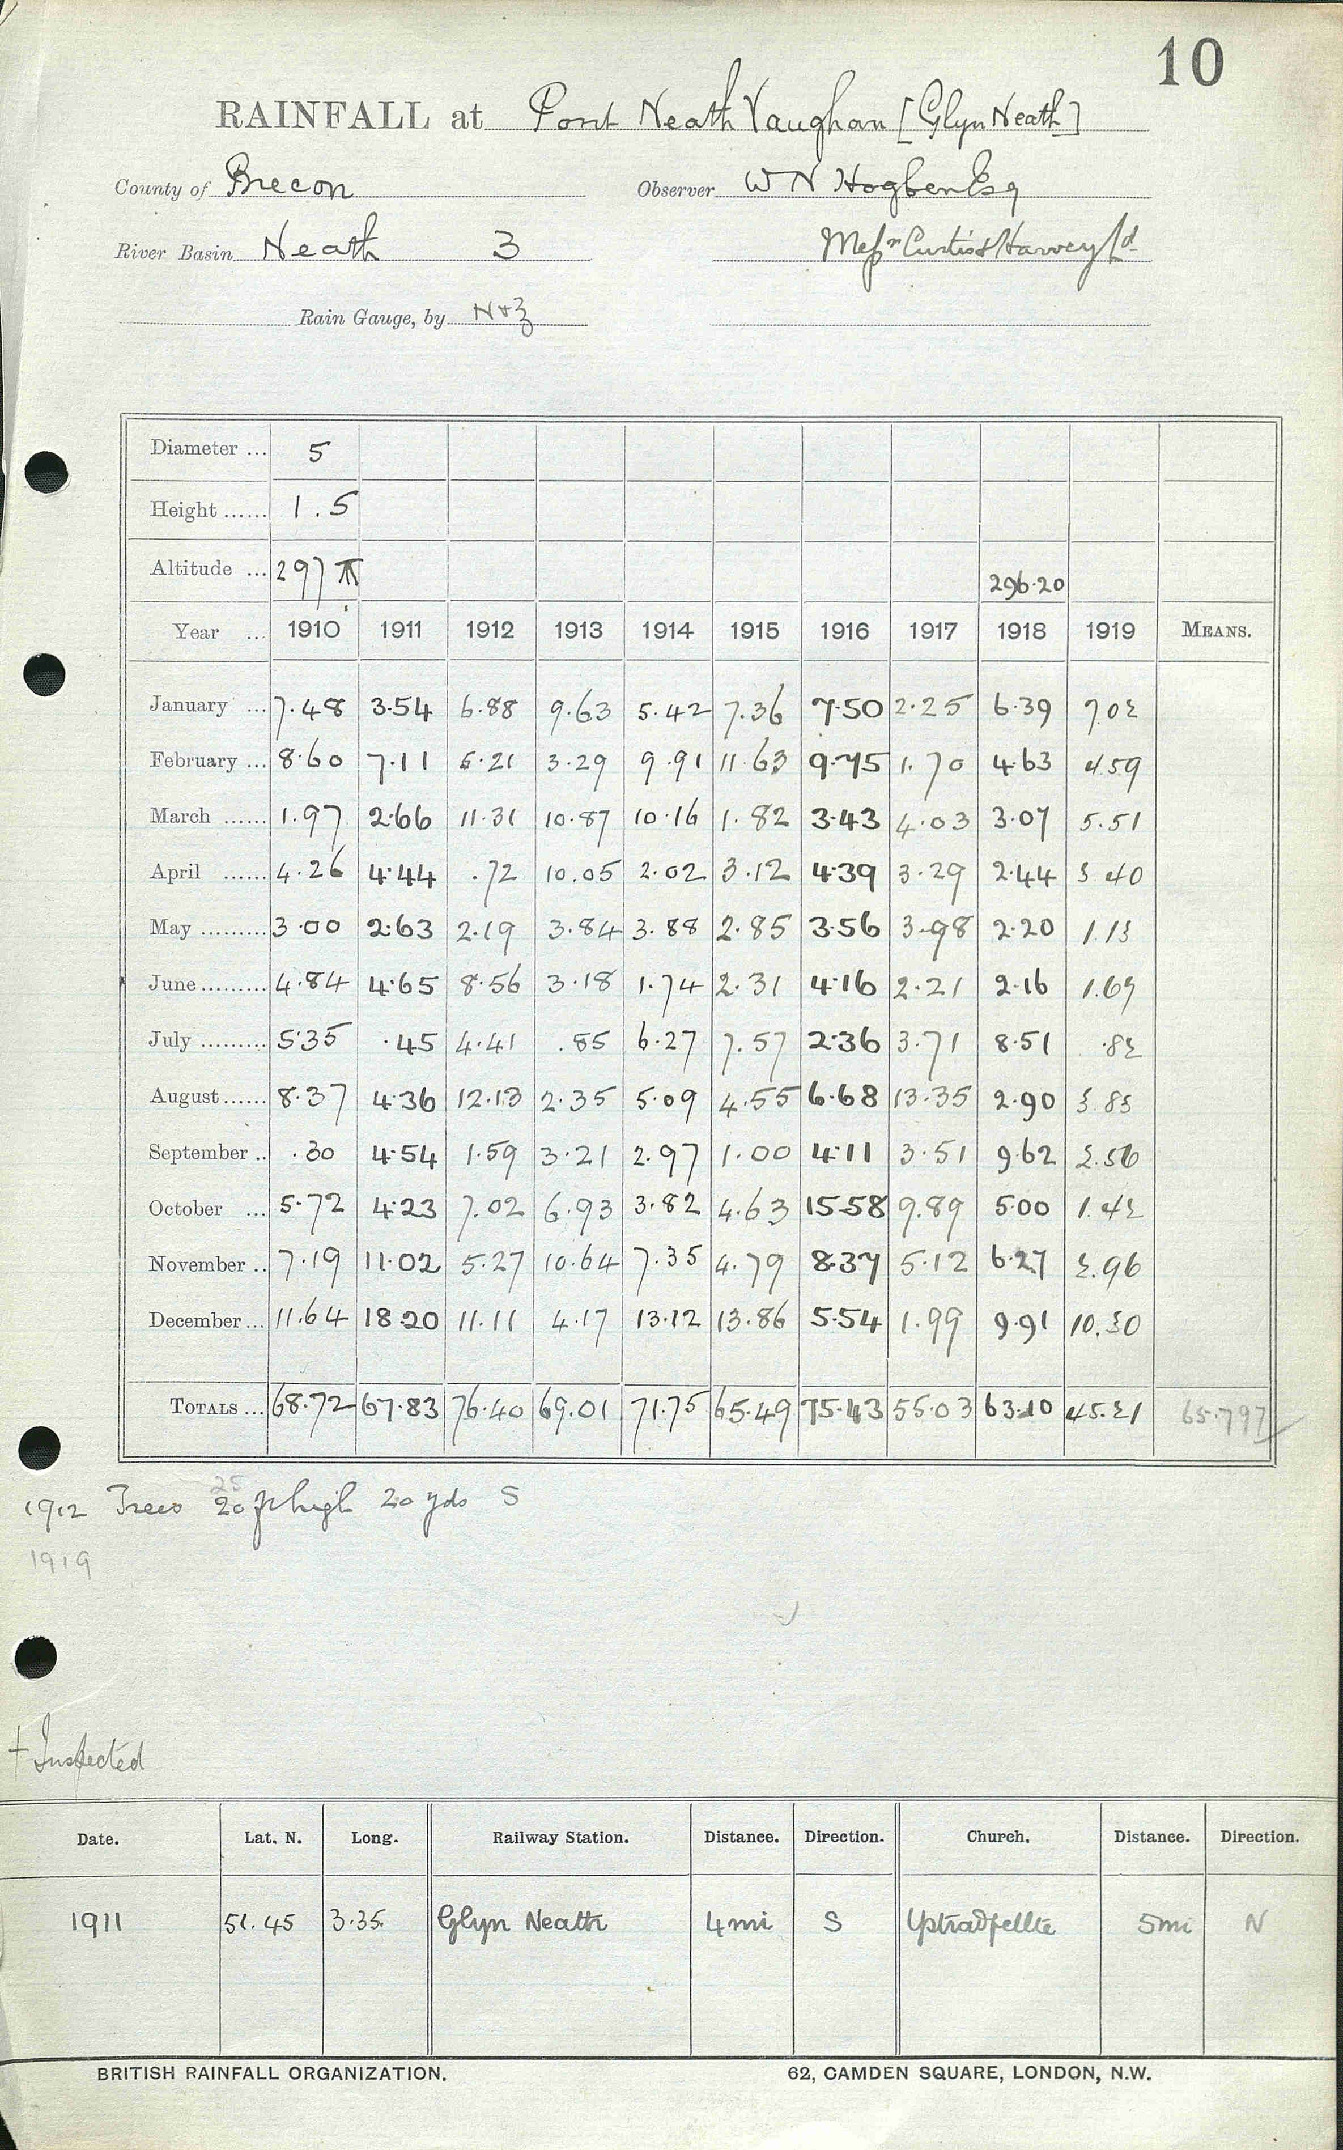 10
RAINFALL at Pont Neath Vaughan [Glyn Neath]
County of Brecon Observer W N Hogben Esq
River Basin Neath 3 Messrs Curtis & Harvey Ld
Rain Gauge, by N+Z
Diameter ... 5
Height ...... 1.5
Altitude ... 297 296.20
Year ... 1910 1911 1912 1913 1914 1915 1916 1917 1918 1919 MEANS.
January ... 7.48 3.54 6.88 9.63 5.42 7.36 7.50 2.25 6.39 7.02
February ... 8.60 7.11 5.21 3.29 9.91 11.63 9.75 1.70 4.63 4.59
March ...... 1.97 2.66 11.31 10.87 10.16 1.82 3.43 4.03 3.07 5.51
April ...... 4.26 4.44 .72 10.05 2.02 3.12 4.39 3.29 2.44 3.40
May ......... 3.00 2.63 2.19 3.84 3.88 2.85 3.56 3.98 2.20 1.13
June ......... 4.84 4.65 8.56 3.18 1.74 2.31 4.16 2.21 2.16 1.67
July ......... 5.35 .45 4.41 .85 6.27 7.57 2.36 3.71 8.51 .82
August ...... 8.37 4.36 12.13 2.35 5.09 4.55 6.68 13.35 2.90 3.83
September .. .30 4.54 1.59 3.21 2.97 1.00 4.11 3.51 9.62 2.56
October ... 5.72 4.23 7.02 6.93 3.82 4.63 15.58 9.89 5.00 1.42
November .. 7.19 11.02 5.27 10.64 7.35 4.79 8.37 5.12 6.27 2.96
December ... 11.64 18.20 11.11 4.17 13.12 13.86 5.54 1.99 9.91 10.30
TOTALS ... 68.72 67.83 76.40 69.01 71.75 65.49 75.43 55.03 63.10 45.21 65.797
25
1912 Trees 20 ft high 20 yds S
1919
+ Inspected
Date. Lat. N. Long. Railway Station. Distance. Direction. Church. Distance. Direction.
1911 51.45 3.35 Glyn Neath 4 mi S Ystradfellte 5 mi N
BRITISH RAINFALL ORGANIZATION. 62, CAMDEN SQUARE, LONDON, N.W.